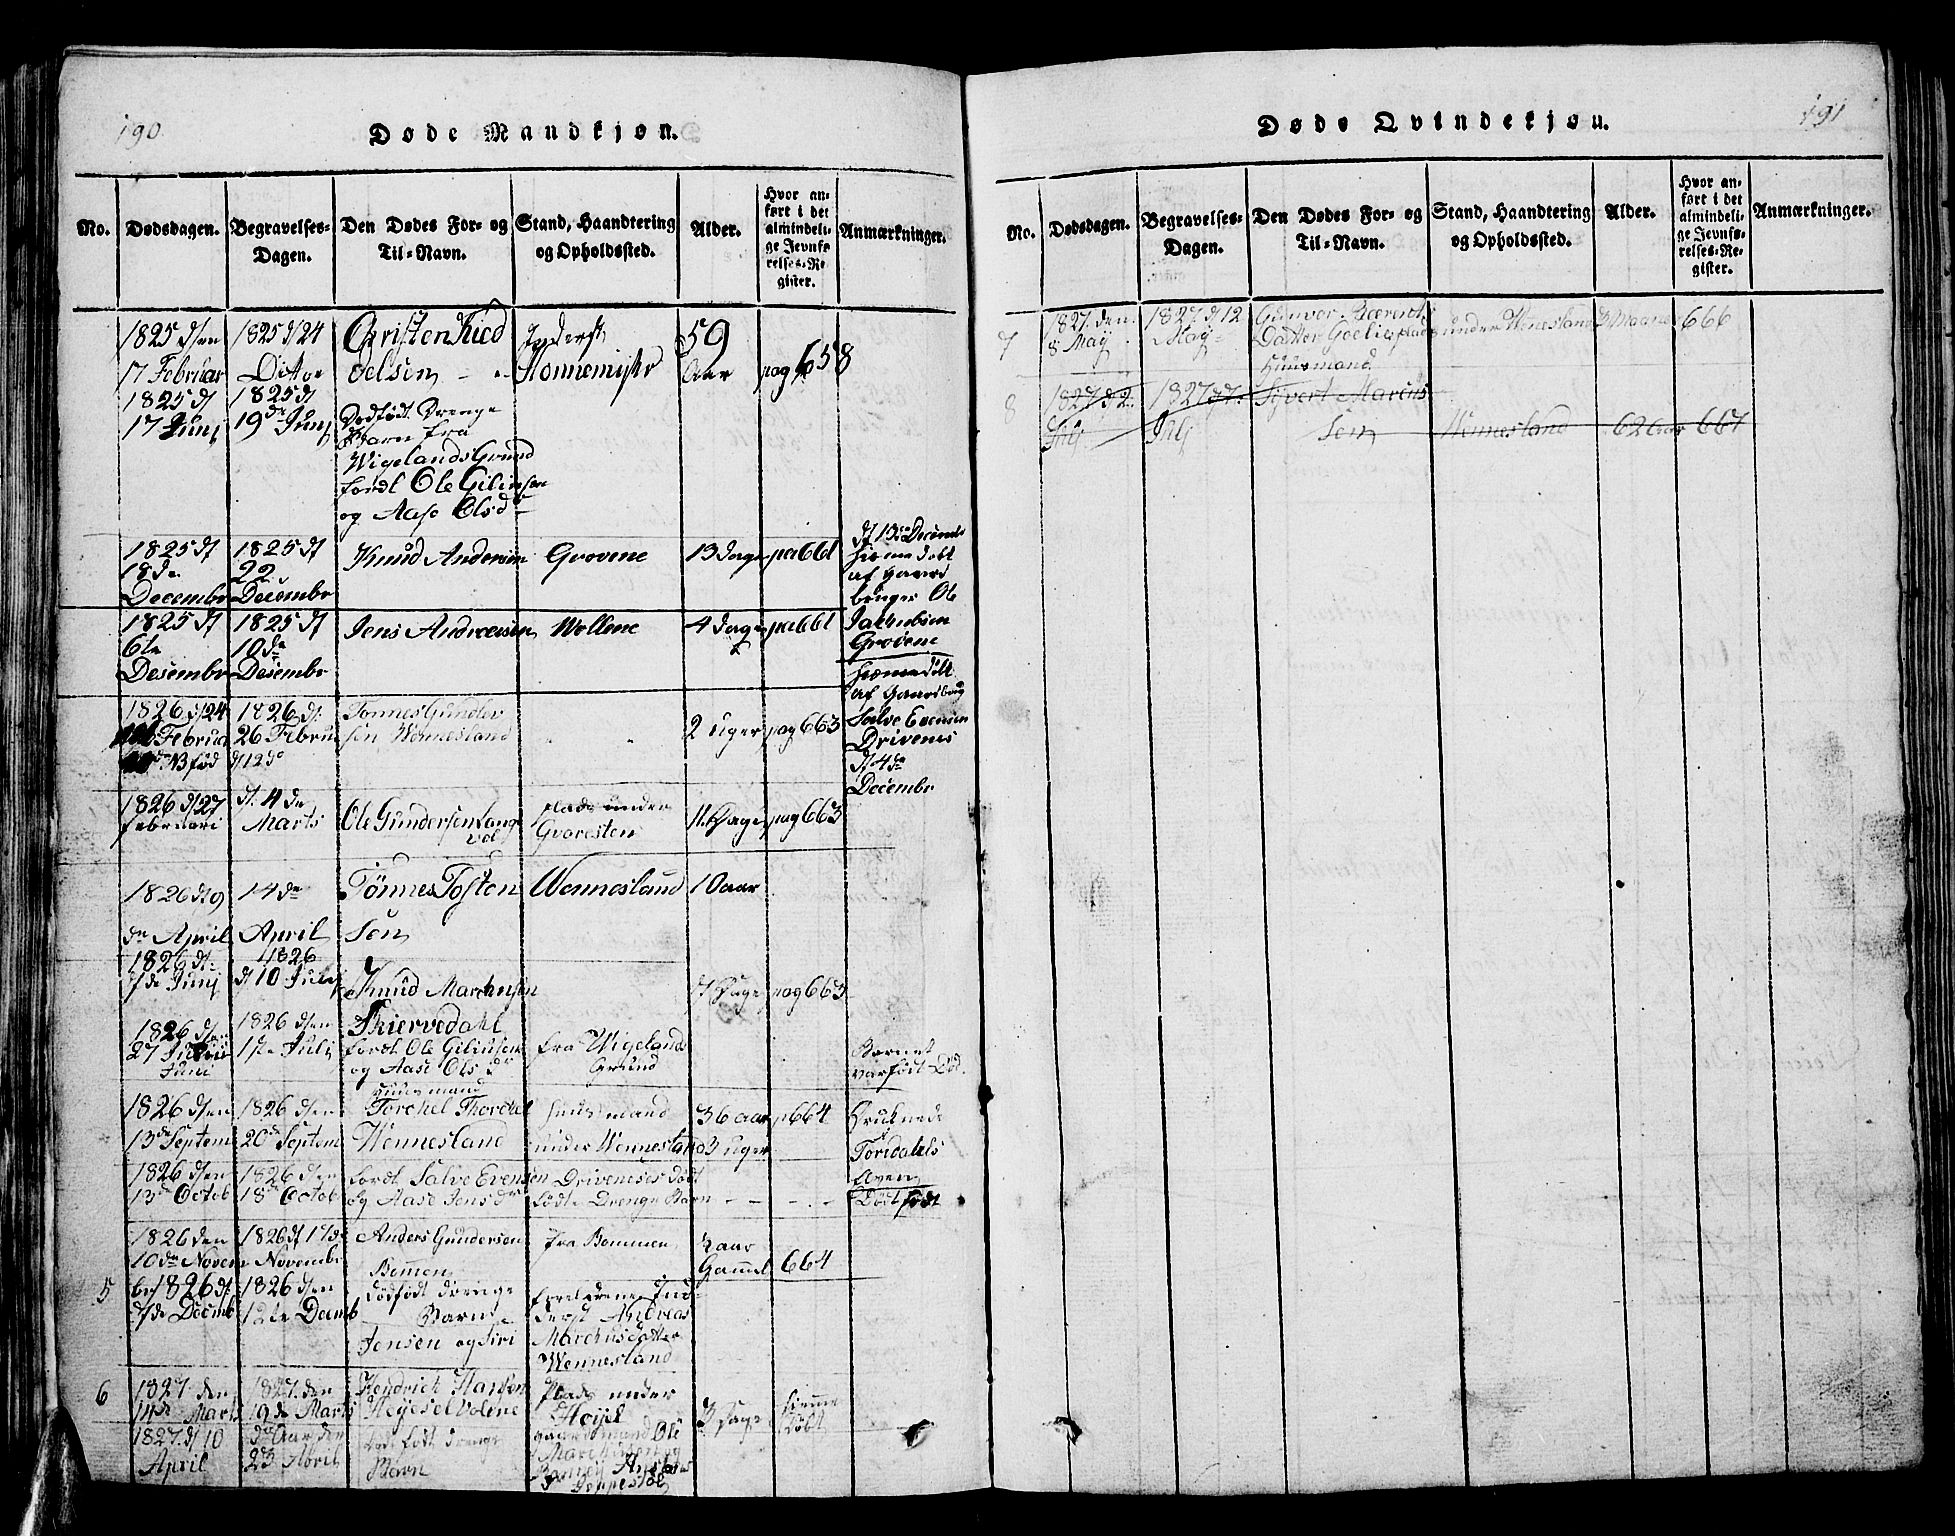 190.
Døde Mandkjøn.
No.
Dødsdagen.
Begravelses-
Dagen.
Den Dødes For- og
Til-Navn.
Stand, Haandtering
og Opholdssted.
Alder.
Hvor an-
ført i det
almindeli-
ge Jevnfø-
relses-Re-
gister.
Anmærkninger.
1825 d/en
17 Februar
1825 d/24
Ditto
Christen
Oelsen
59
Aar
pag 658
1825 d/
17 Junj
1825 d/
19de Junj
Dødfødt Drenge
Barn fra
Wigelands Grund
fordl Ole Gilinsen
og Aase Olsd
1825 d/
18de
Decembr
1825 d/
22
Decembr
Knud Andersen
Grovene
13 dage
pa 661
d/ 13de Decembr
hiemedøbt
af Gaard
bruger Ole
Jakobsen
Grovene
1825 d/
6te
Desembr
1825 d/
10de
Desembr
Jens Andreesen
Wollene
4 dage
pa 661
hiemedøbt
af Gaardbrug
Salve Evensen
Drivenes
d/ 4de
Decembr
1826 d/24
Februar
NB fød d/12de
1826 d/
26 Februa
Tønnes Gunder
sen Wennesland
2 uger
pag 663
1826 d/27
februari
d/ 4de
Marts
Ole Gundersen Lang
vol
plads under
Gvaresten
11 Dage
pag 663
1826 d/9
de April
14de
April
Tønnes Tosten
Sen
Wennesland
10 aar
1826 d/
7de Junj
1826
d/ 10 Julj
Knud Marchusen
Skiervedahl
7 Dage
pag 663
1826 d/en
27
Juni
1826 d/en
1ste Julj
fordl Ole Gilinsen
og Aase Olsdr
Huusmand
fra Wigelands
Grund
Barnet
var født Død.
1826 d/en
13de Septem
1826 d/en
20de Septem
Torchel Thorchel
Wennesland
Huusmand
under Wennesland
36 aar
3 uger
p 664
Druknede
i Toridahls
Elven
1826 d/en
13de Octob
1826 d/en
18de Octob
fordl Salve Evensen
og Aase Jensdr
Drivenes død
fødte Drenge Barn
Død født
1826 den
10de Novem
br
1826 d/ 17de
Novembr
Anders Gundersen
Bommen
fra Bommen
aar
Gammel
664
5
1826 d/
7de Decmb
1826 d/en
12te Decmb
dødfødt drenge
Barn
Jensen og Siri
forelderne Ind-
derst Andreas
Marchusdatter
Wennesland
6
1827 den
14de Marts
1827 den
19de Marts
Hendrich Hansen
Heyesel Volene
Plads under
Høyel
3 dage
hiemme
døbt
1827 d/ 10
April
de Aar den
23 April
død født drenge
Barn
gaardmand Ole
191
Døde Qvindekjøn.
No.
Dødsdagen.
Begravelses-
Dagen.
Den Dødes For- og
Til-Navn.
Stand, Haandtering
og Opholdssted.
Alder.
Hvor an-
ført i det
almindeli-
ge Jevnfø-
relses-Re-
gister.
Anmærkninger.
7
1827 den
8 May
1827 d/12
May
Gunvor
Datter
Huusmand
under Wennesland
666
8
1827 d 2
Julj
1827 d/7
Julj
Sivert Marcus
Sen
Wennesland
62 aar
667